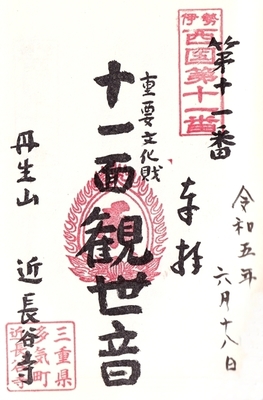 伊勢
西国第十一番
第十一番
奉拝
令和五年
六月十八日
重要文化財
十一面観世音
丹生山 近長谷寺
三重県
多気町
近長谷寺